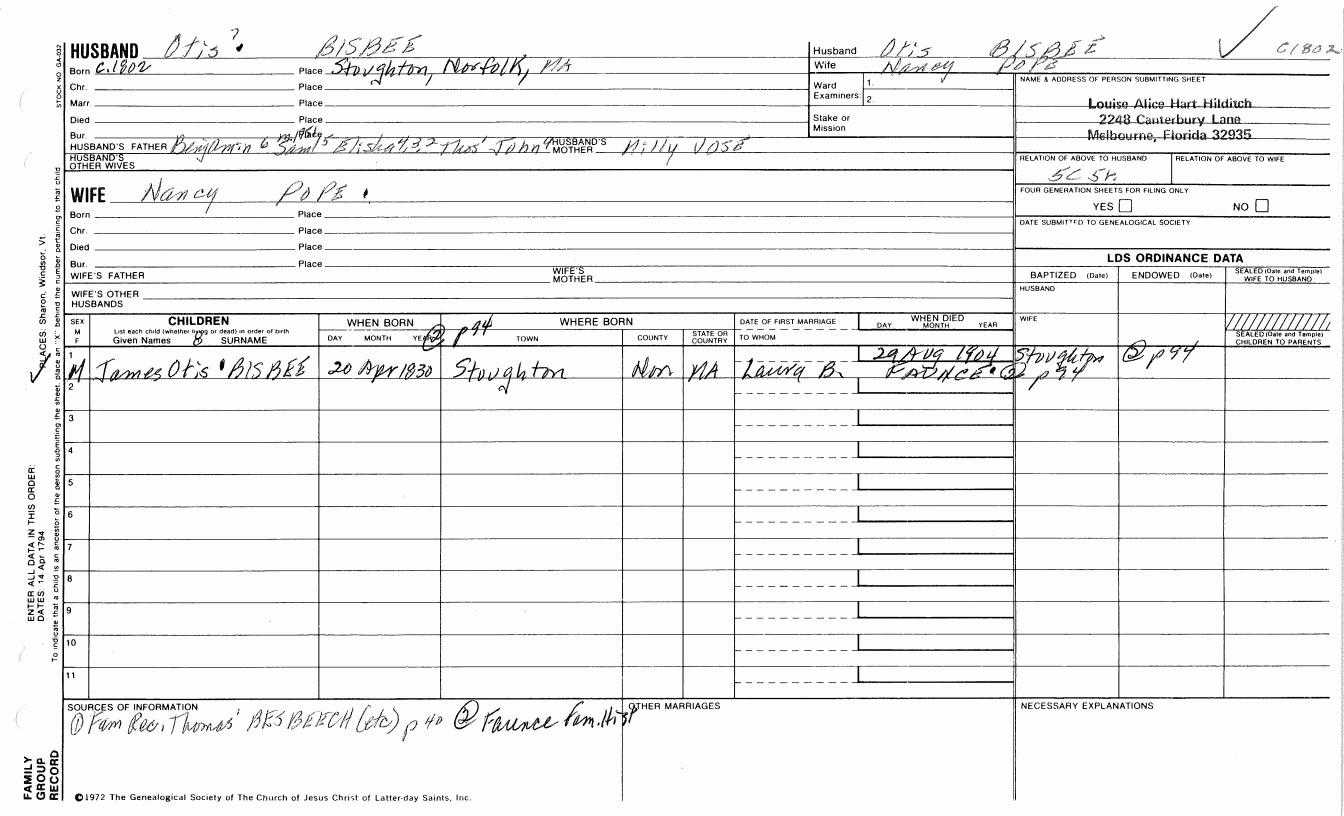 HUSBAND Otis ? BISBEE
Born c.1802 Place Stoughton, Norfolk, MA
Chr. Place
Marr Place
Died Place
Bur
HUSBAND'S FATHER Benjamin 6 Sam'l 5 Elisha 4,3,2 Thos' John HUSBAND'S MOTHER Milly VOSE
HUSBAND'S OTHER WIVES
Husband Otis BISBEE C1802
Wife Nancy POPE
Ward Examiners 1. 2.
Stake or Mission
NAME & ADDRESS OF PERSON SUBMITTING SHEET
Louise Alice Hart Hilditch
2248 Canterbury Lane
Melbourne, Florida 32935
RELATION OF ABOVE TO HUSBAND RELATION OF ABOVE TO WIFE
5C 5r.
FOUR GENERATION SHEETS FOR FILING ONLY
YES NO
DATE SUBMITTED TO GENEALOGICAL SOCIETY
WIFE Nancy POPE
Born Place
Chr. Place
Died Place
Bur. Place
WIFE'S FATHER WIFE'S MOTHER
WIFE'S OTHER HUSBANDS
LDS ORDINANCE DATA
BAPTIZED (Date) ENDOWED (Date) SEALED (Date and Temple) WIFE TO HUSBAND
HUSBAND
WIFE
SEALED (Date and Temple) CHILDREN TO PARENTS
SEX M F
CHILDREN
List each child (whether living or dead) in order of birth
Given Names SURNAME
WHEN BORN
DAY MONTH YEAR ② p94
WHERE BORN
TOWN COUNTY STATE OR COUNTRY
DATE OF FIRST MARRIAGE
TO WHOM
WHEN DIED
DAY MONTH YEAR
1 29 AUG 1904 Stoughton ② p94
M James Otis BISBEE 20 Apr 1830 Stoughton Nor MA Laura B. FAUNCE ② p94
2
3
4
5
6
7
8
9
10
11
SOURCES OF INFORMATION
① Fam Rec. Thomas' BESBEECH (etc) p 40 ② Faunce Fam. Hist
OTHER MARRIAGES
NECESSARY EXPLANATIONS
©1972 The Genealogical Society of The Church of Jesus Christ of Latter-day Saints, Inc.
STOCK NO. GA-032
To indicate that a child is an ancestor of the person submitting the sheet, place an "X" behind the number pertaining to that child
PLACES: Sharon, Windsor, Vt.
ENTER ALL DATA IN THIS ORDER:
DATES: 14 Apr 1794
FAMILY
GROUP
RECORD